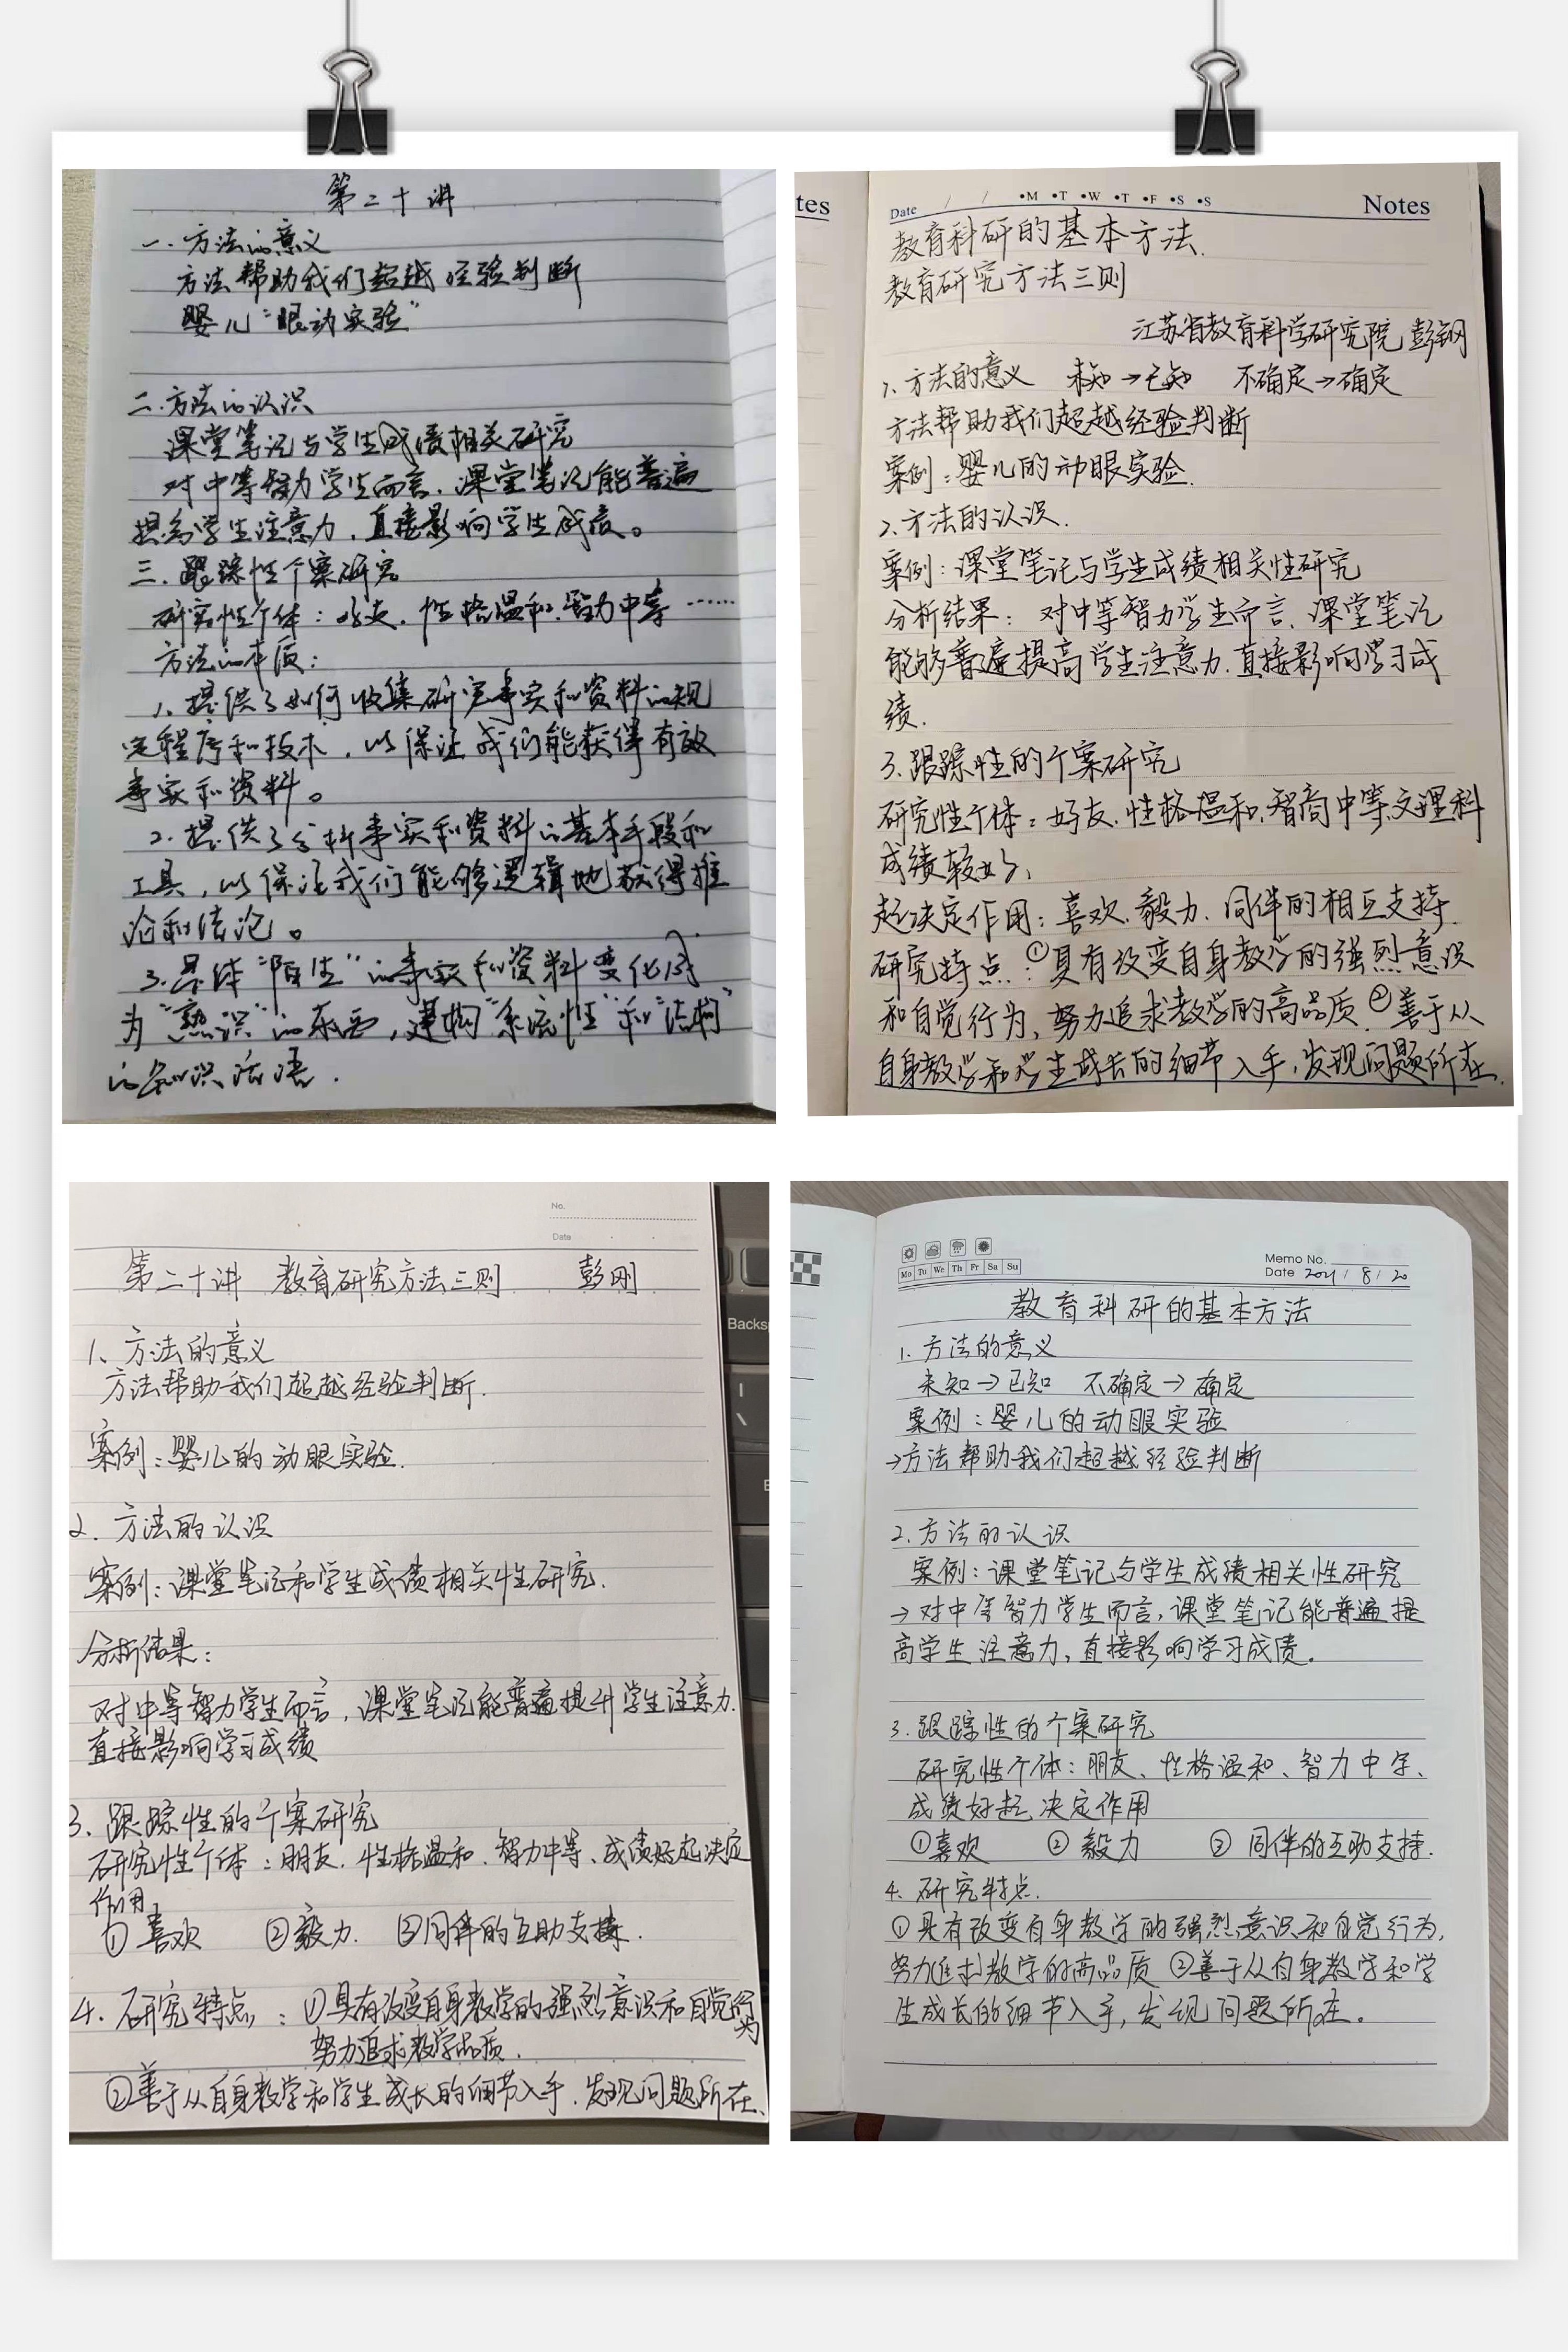 第二十讲
一.方法的意义
方法帮助我们超越经验判断
婴儿“眼动实验”
二.方法的认识
课堂笔记与学生成绩相关研究
对中等智力学生而言,课堂笔记能普遍
提高学生注意力,直接影响学生成绩。
三.跟踪性个案研究
研究性个体:好友.性格温和.智力中等……
方法的本质:
1.提供了如何收集研究事实和资料的规
定程序和技术,以保证我们能获得有效
事实和资料。
2.提供了分析事实和资料的基本手段和
工具,以保证我们能够逻辑地获得推
论和结论。
3.具体“陌生”的事实和资料变化成
为“熟识”的东西,建构“系统性”和“结构”
的知识话语.
tes
Date / / •M •T •W •T •F •S •S Notes
教育科研的基本方法.
教育研究方法三则
江苏省教育科学研究院 彭钢
1.方法的意义 未知→已知 不确定→确定
方法帮助我们超越经验判断
案例:婴儿的动眼实验.
2.方法的认识.
案例:课堂笔记与学生成绩相关性研究
分析结果:对中等智力学生而言,课堂笔记
能够普遍提高学生注意力.直接影响学习成
绩.
3.跟踪性的个案研究
研究性个体:好友.性格温和.智商中等.文理科
成绩较好,
起决定作用:喜欢.毅力.同伴的相互支持.
研究特点:①具有改变自身教学的强烈意识
和自觉行为,努力追求教学的高品质.②善于从
自身教学和学生成长的细节入手,发现问题所在.
No.
Date
第二十讲 教育研究方法三则 彭刚
1、方法的意义
方法帮助我们超越经验判断.
案例:婴儿的动眼实验.
2.方法的认识
案例:课堂笔记和学生成绩相关性研究.
分析结果:
对中等智力学生而言,课堂笔记能普遍提升学生注意力.
直接影响学习成绩
3.跟踪性的个案研究
研究性个体:朋友.性格温和.智力中等、成绩好起决定
作用.
①喜欢 ②毅力. ③同伴的互助支持.
4.研究特点:①具有改变自身教学的强烈意识和自觉行为
努力追求教学品质.
②善于从自身教学和学生成长的细节入手.发现问题所在、
Backs
Mo Tu We Th Fr Sa Su
Memo No.
Date 2021 / 8 / 20
教育科研的基本方法
1.方法的意义
未知→已知 不确定→确定
案例:婴儿的动眼实验
→方法帮助我们超越经验判断
2.方法的认识
案例:课堂笔记与学生成绩相关性研究
→对中等智力学生而言,课堂笔记能普遍提
高学生注意力,直接影响学习成绩。
3.跟踪性的个案研究
研究性个体:朋友、性格温和、智力中等、
成绩好起决定作用
①喜欢 ②毅力 ③同伴的互助支持.
4.研究特点.
①具有改变自身教学的强烈意识和自觉行为,
努力追求教学的高品质 ②善于从自身教学和学
生成长的细节入手,发现问题所在。